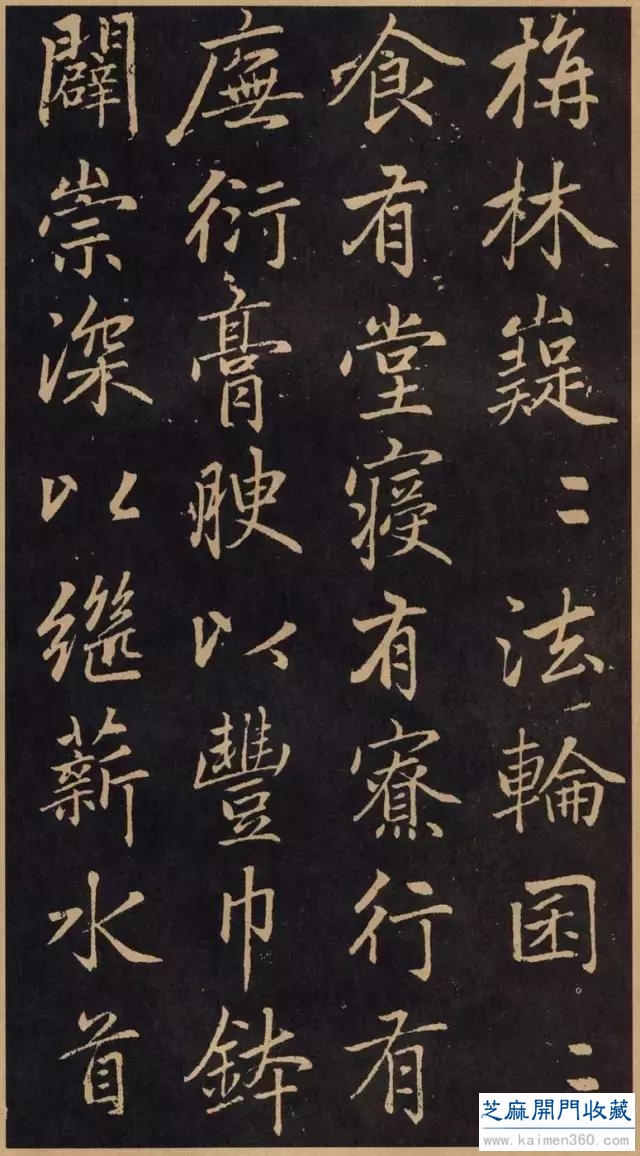 栴林嶷〻法輪囷〻
食有堂寢有寮行有
廡衍膏腴以豐巾鉢
闢崇深以繼薪水首
芝麻開門收藏
www.kaimen360.com